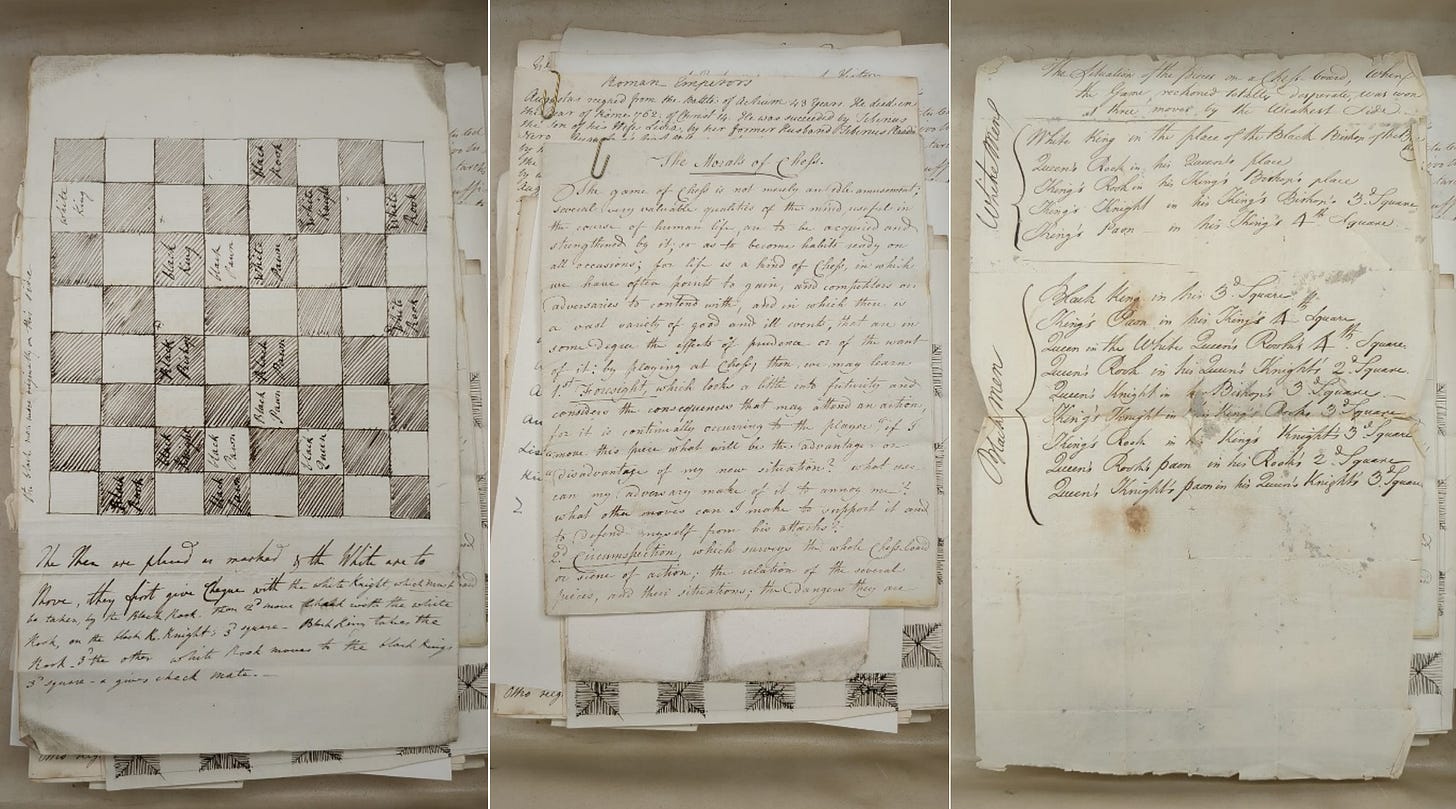 Black
Rook
White
King
White
Knight
White
Rook
Black
King
Black
Pawn
White
Pawn
White
Rook
Black
Bishop
Black
Pawn
Black
Pawn
Black
Knight
Black
Pawn
Black
Queen
Black
Rook
Black
Pawn
the black men were originally on this side
The Men are placed as marked & the White are to
Move, they first give Cheque with the white Knight which must
be taken, by the Black Rook. Then 2d move Check with the white
Rook, on the black K. Knight's 3d square – Black King takes the
Rook – 3d the other white Rook moves to the black Kings
3d square – & gives check mate. –
Roman Emperors
Augustus reigned from the Battle of Actium 43 Years. He died in
the Year of Rome 762, of Christ 14. He was succeeded by Tiberius
the Son of his Wife Livia, by her former Husband Tiberius
Nero
The Morals of Chess.
The game of Chess is not merely an idle amusement;
several very valuable qualities of the mind useful in
the course of human life, are to be acquired and
strengthened by it, so as to become habits ready on
all occasions; for life is a kind of Chess, in which
we have often points to gain, and competitors or
adversaries to contend with, and in which there is
a vast variety of good and ill events, that are in
some degree the effects of prudence or of the want
of it: by playing at Chess, then, we may learn
1st Foresight, which looks a little into futurity and
considers the consequences that may attend an action,
for it is continually occurring to the player "if I
move this piece what will be the advantage or
disadvantage of my new situation? what use
can my adversary make of it to annoy me?
what other moves can I make to support it and
to defend myself from his attacks?"
2d Circumspection, which surveys the whole Chess-board
or scene of action; the relation of the several
pieces, and their situations; the dangers they are
The Situation of the Pieces on a Chess-board, when
the Game reckoned totally desperate, was won
at three moves by the Weakest Side.
White Men
White King in the place of the Black Bishop of the
Queen's Rook in his Queen's place
King's Rook in his King's Bishop's place
King's Knight in his King's Bishop's 3d Square
King's Paon in his King's 4th Square
Black men
Black King in his 3d Square
King's Paon in his King's 4th Square
Queen in the White Queen's Rook's 4th Square
Queen's Rook in his Queen's Knight's 2d Square
Queen's Knight in Bishop's 3d Square
King's Knight in his King's Rook's 3d Square
King's Rook in King's Knight's 3d Square
Queen's Rook's paon in his Rook's 2d Square
Queen's Knight's paon in his Queen's Knight's 3d Square